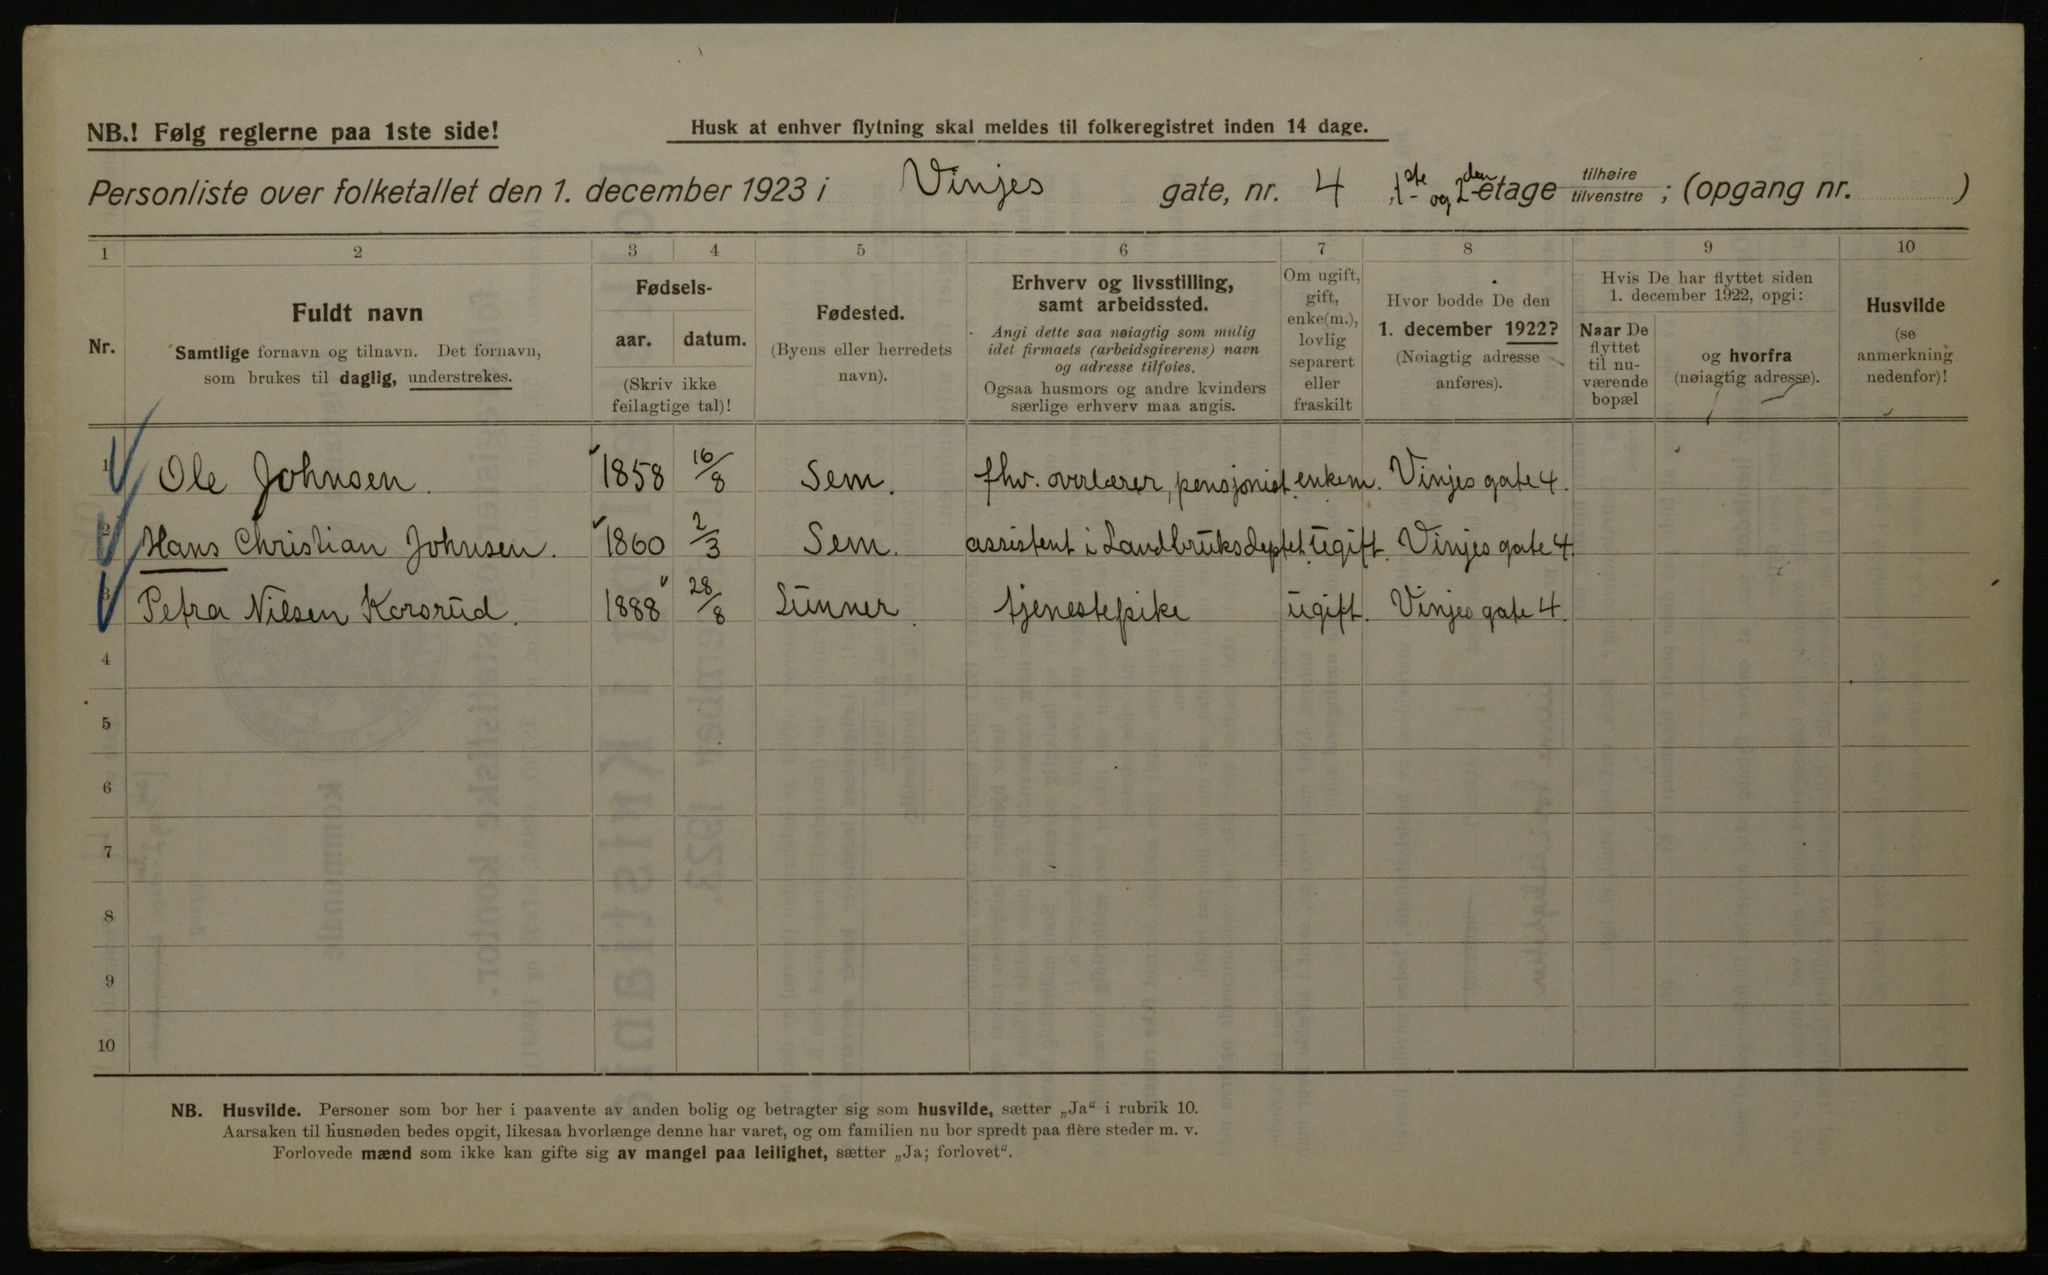 NB.! Følg reglerne paa 1ste side!
Husk at enhver flytning skal meldes til folkeregistret inden 14 dage.
Personliste over folketallet den 1. december 1923 i Vinjes gate, nr. 4, 1ste og 2den etage tilhøire tilvenstre; (opgang nr. )
1 2 3 4 5 6 7 8 9 10
Nr.
Fuldt navn
Samtlige fornavn og tilnavn. Det fornavn,
som brukes til daglig, understrekes.
Fødsels-
aar. datum.
(Skriv ikke
feilagtige tal)!
Fødested.
(Byens eller herredets
navn).
Erhverv og livsstilling,
samt arbeidssted.
Angi dette saa nøiagtig som mulig
idet firmaets (arbeidsgiverens) navn
og adresse tilføies.
Ogsaa husmors og andre kvinders
særlige erhverv maa angis.
Om ugift,
gift,
enke(m.),
lovlig
separert
eller
fraskilt
Hvor bodde De den
1. december 1922?
(Nøiagtig adresse
anføres).
Hvis De har flyttet siden
1. december 1922, opgi:
Naar De
flyttet
til nu-
værende
bopæl
og hvorfra
(nøiagtig adresse).
Husvilde
(se
anmerkning
nedenfor)!
1 Ole Johnsen. 1858 16/8 Sem. fhv. overlærer, pensjonist enkem. Vinjes gate 4.
2 Hans Christian Johnsen. 1860 2/3 Sem. assistent i Landbruksdeptet. ugift. Vinjes gate 4.
3 Petra Nilsen Korsrud. 1888 28/8 Lunner. tjenestepike ugift. Vinjes gate 4.
4
5
6
7
8
9
10
NB. Husvilde. Personer som bor her i paavente av anden bolig og betragter sig som husvilde, sætter „Ja“ i rubrik 10.
Aarsaken til husnøden bedes opgit, likesaa hvorlænge denne har varet, og om familien nu bor spredt paa flere steder m. v.
Forlovede mænd som ikke kan gifte sig av mangel paa leilighet, sætter „Ja; forlovet“.